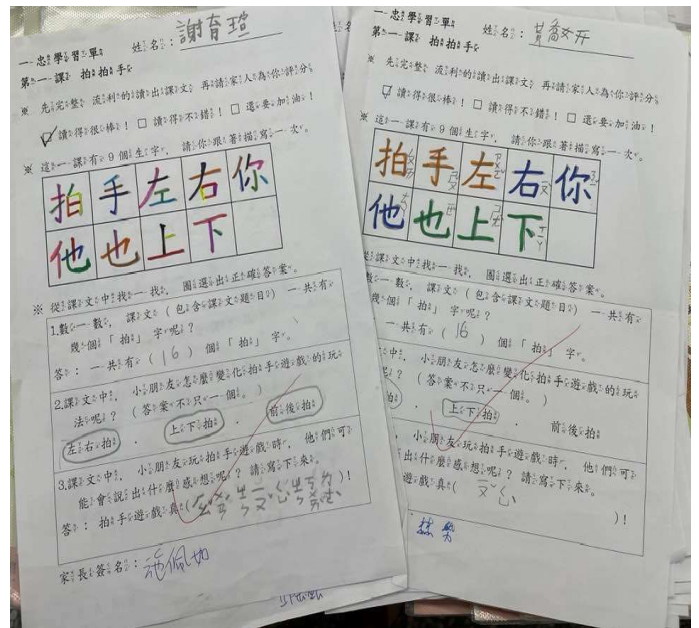 一忠學習單 姓名：謝育瑄
第一課 拍拍手
※ 先完整、流利的讀出課文，再請家人為你評分。
☑ 讀得很棒！ □ 讀得不錯！ □ 還要加油！
※ 這一課有9個生字，請你跟著描寫一次。
拍手左右你
他也上下
※ 從課文中找一找，圈選出正確答案。
1.數一數，課文（包含課文題目）一共有
幾個「拍」字呢？
答：一共有（16）個「拍」字。
2.課文中，小朋友怎麼變化拍手遊戲的玩
法呢？（答案不只一個。）
左右拍、上下拍、前後拍
3.課文中，小朋友玩拍手遊戲時，他們可
能會說出什麼感想呢？請寫下來。
答：拍手遊戲真( )!
家長簽名：施佩如
一忠學習單 姓名：
第一課 拍拍手
※ 先完整、流利的讀出課文，再請家人為你評分
☑ 讀得很棒！ □ 讀得不錯！ □ 還要加油！
※ 這一課有9個生字，請你跟著描寫一次。
拍手左右你
他也上下
從課文中找一找，圈選出正確答案。
數一數，課文（包含課文題目）一共有
幾個「拍」字呢？
一共有（16）個「拍」字。
中，小朋友怎麼變化拍手遊戲的玩
呢？（答案不只一個。）
拍、上下拍、前後拍
，小朋友玩拍手遊戲時，他們可
出什麼感想呢？請寫下來。
遊戲真( )!